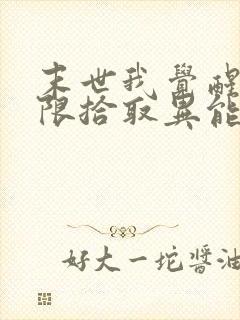 末世我覺醒
限拾取異能
好大一坨醬油